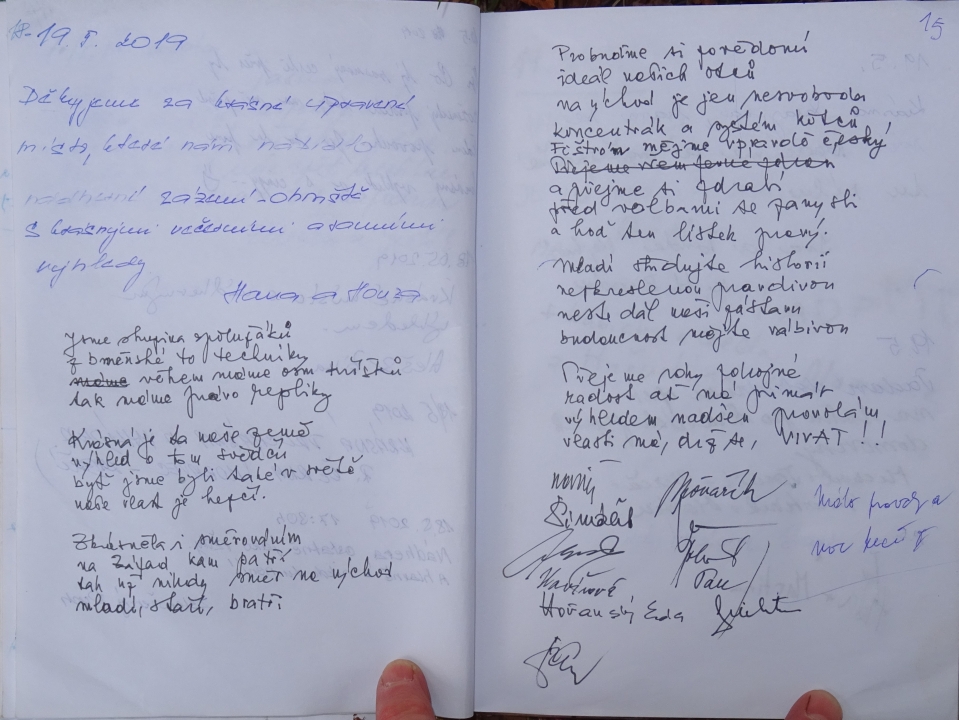 18.-19. 5. 2019
Děkujeme za krásné upravené
místo, které nám nabízelo
nádherný zážitek - ohniště
s krásnými večerními a ranními
výhledy
Hana a Honza
Jsme skupina spolužáků
z brněnské to techniky
během máme osm turistů
tak máme právo repliky
Krásná je ta naše země
výhled o tom svědčí
byť jsme byli také v světě
naše vlast je hepčí.
Zkrásněla i směrováním
na Západ kam patří
tak už nikdy směr na východ
mladí, staří, bratři
15
Probuďme si povědomí
ideál našich otců
na východ je jen nesvoboda
koncentrák a systém kotců
mějme vpravdě český
a přejme si zdraví
před volbami se zamysli
a hoď ten lístek pravý.
Mladí studujte historii
nezkreslenou pravdivou
neste dál naši zástavu
budoucnost mějte vábivou
Přejeme roky pokojné
radost ať má primát
výhledem nadšen provolám
vlasti má, drž se, VIVAT!!
Šimáček
Havířová
Hořanský Eda
Málo pravdy a
moc kečů